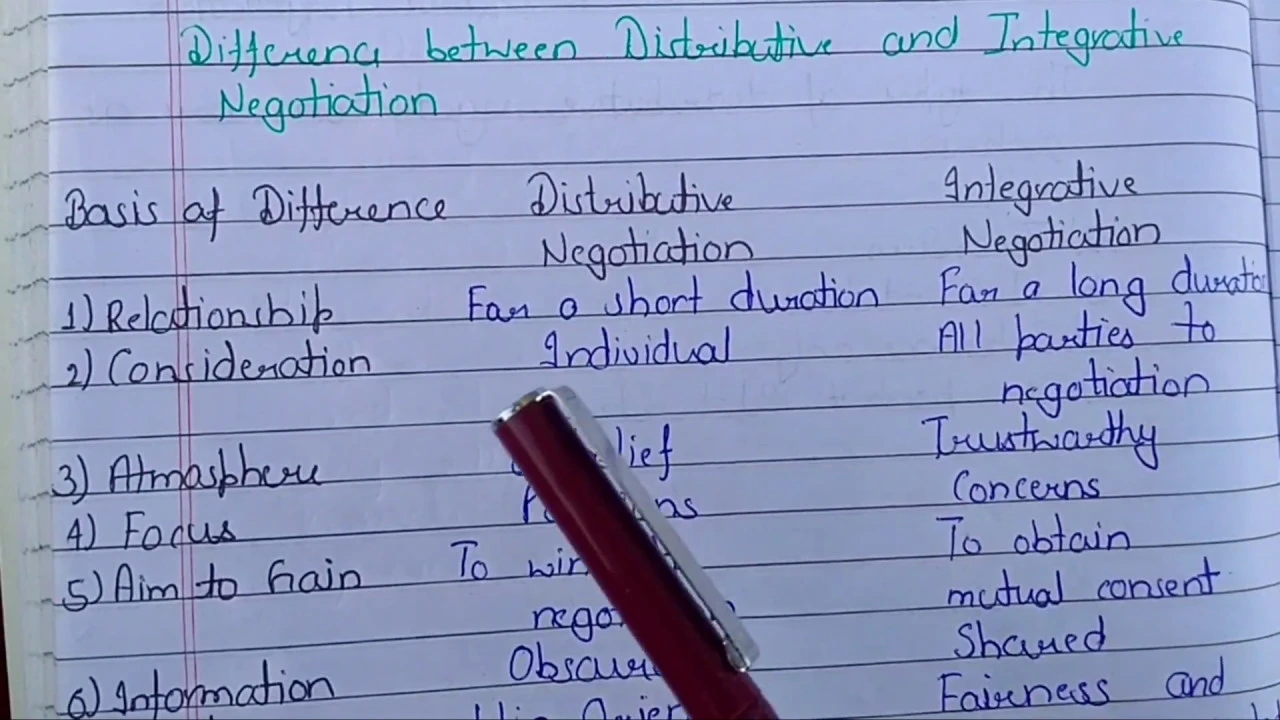 Difference between Distributive and Integrative
Negotiation
Basis of Difference Distributive Integrative
Negotiation Negotiation
1) Relationship For a short duration For a long duratio
2) Consideration Individual All parties to
negotiation
3) Atmosphere lief Trustworthy
4) Focus ns Concerns
5) Aim to Gain To win To obtain
nego mutual consent
6) Information Obscure Shared
Fairness and